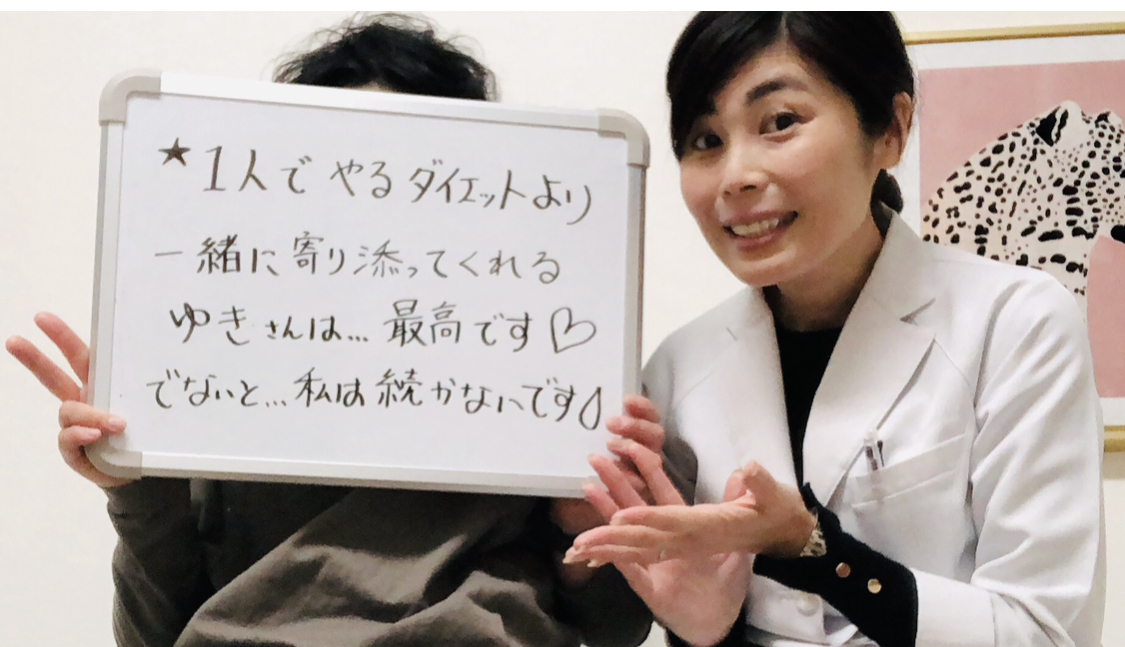 ★1人でやるダイエットより
一緒に寄り添ってくれる
ゆきさんは…最高です♡
でないと…私は続かないです